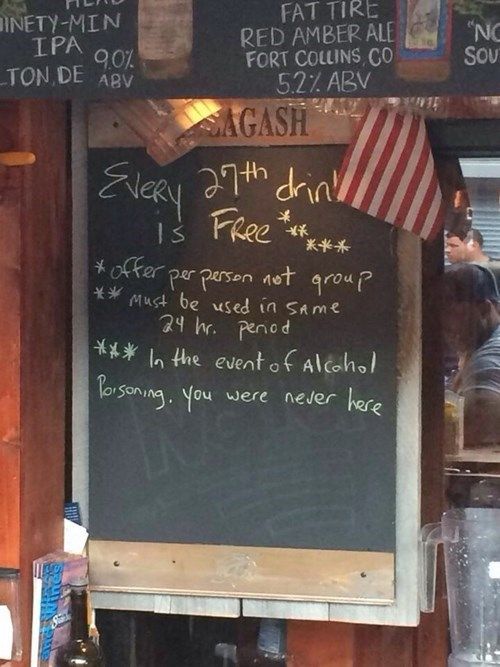 FAT TIRE
RED AMBER ALE
FORT COLLINS, CO
5.2% ABV
IPA
9.0%
ABV
Every 27th
is Free* ** ***
* offer per person not group
** Must be used in SAME
24 hr. period
*** In the event of Alcohol
Poisoning, you were never here